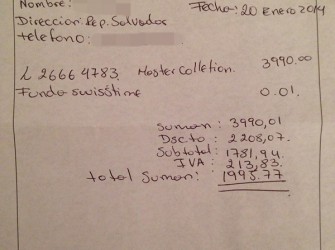 Nombre:
Fecha: 20 Enero 2014
Direccion: Rep. Salvador
telefono:
L 2666 4783. Master Colletion. 3990.00
Funda swisstime 0.01.
Suman: 3990,01
Dscto: 2208,07.
Subtotal: 1781,94.
IVA: 213,83.
total Suman: 1995.77